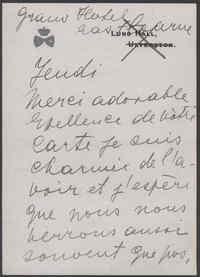 Grand Hotel
Lund Hall,
Jeudi
Merci adorable
Exellence de votre
carte je suis
charmée de l'a-
voir et j'espère
que nous nous
verrons aussi
souvent que pos,